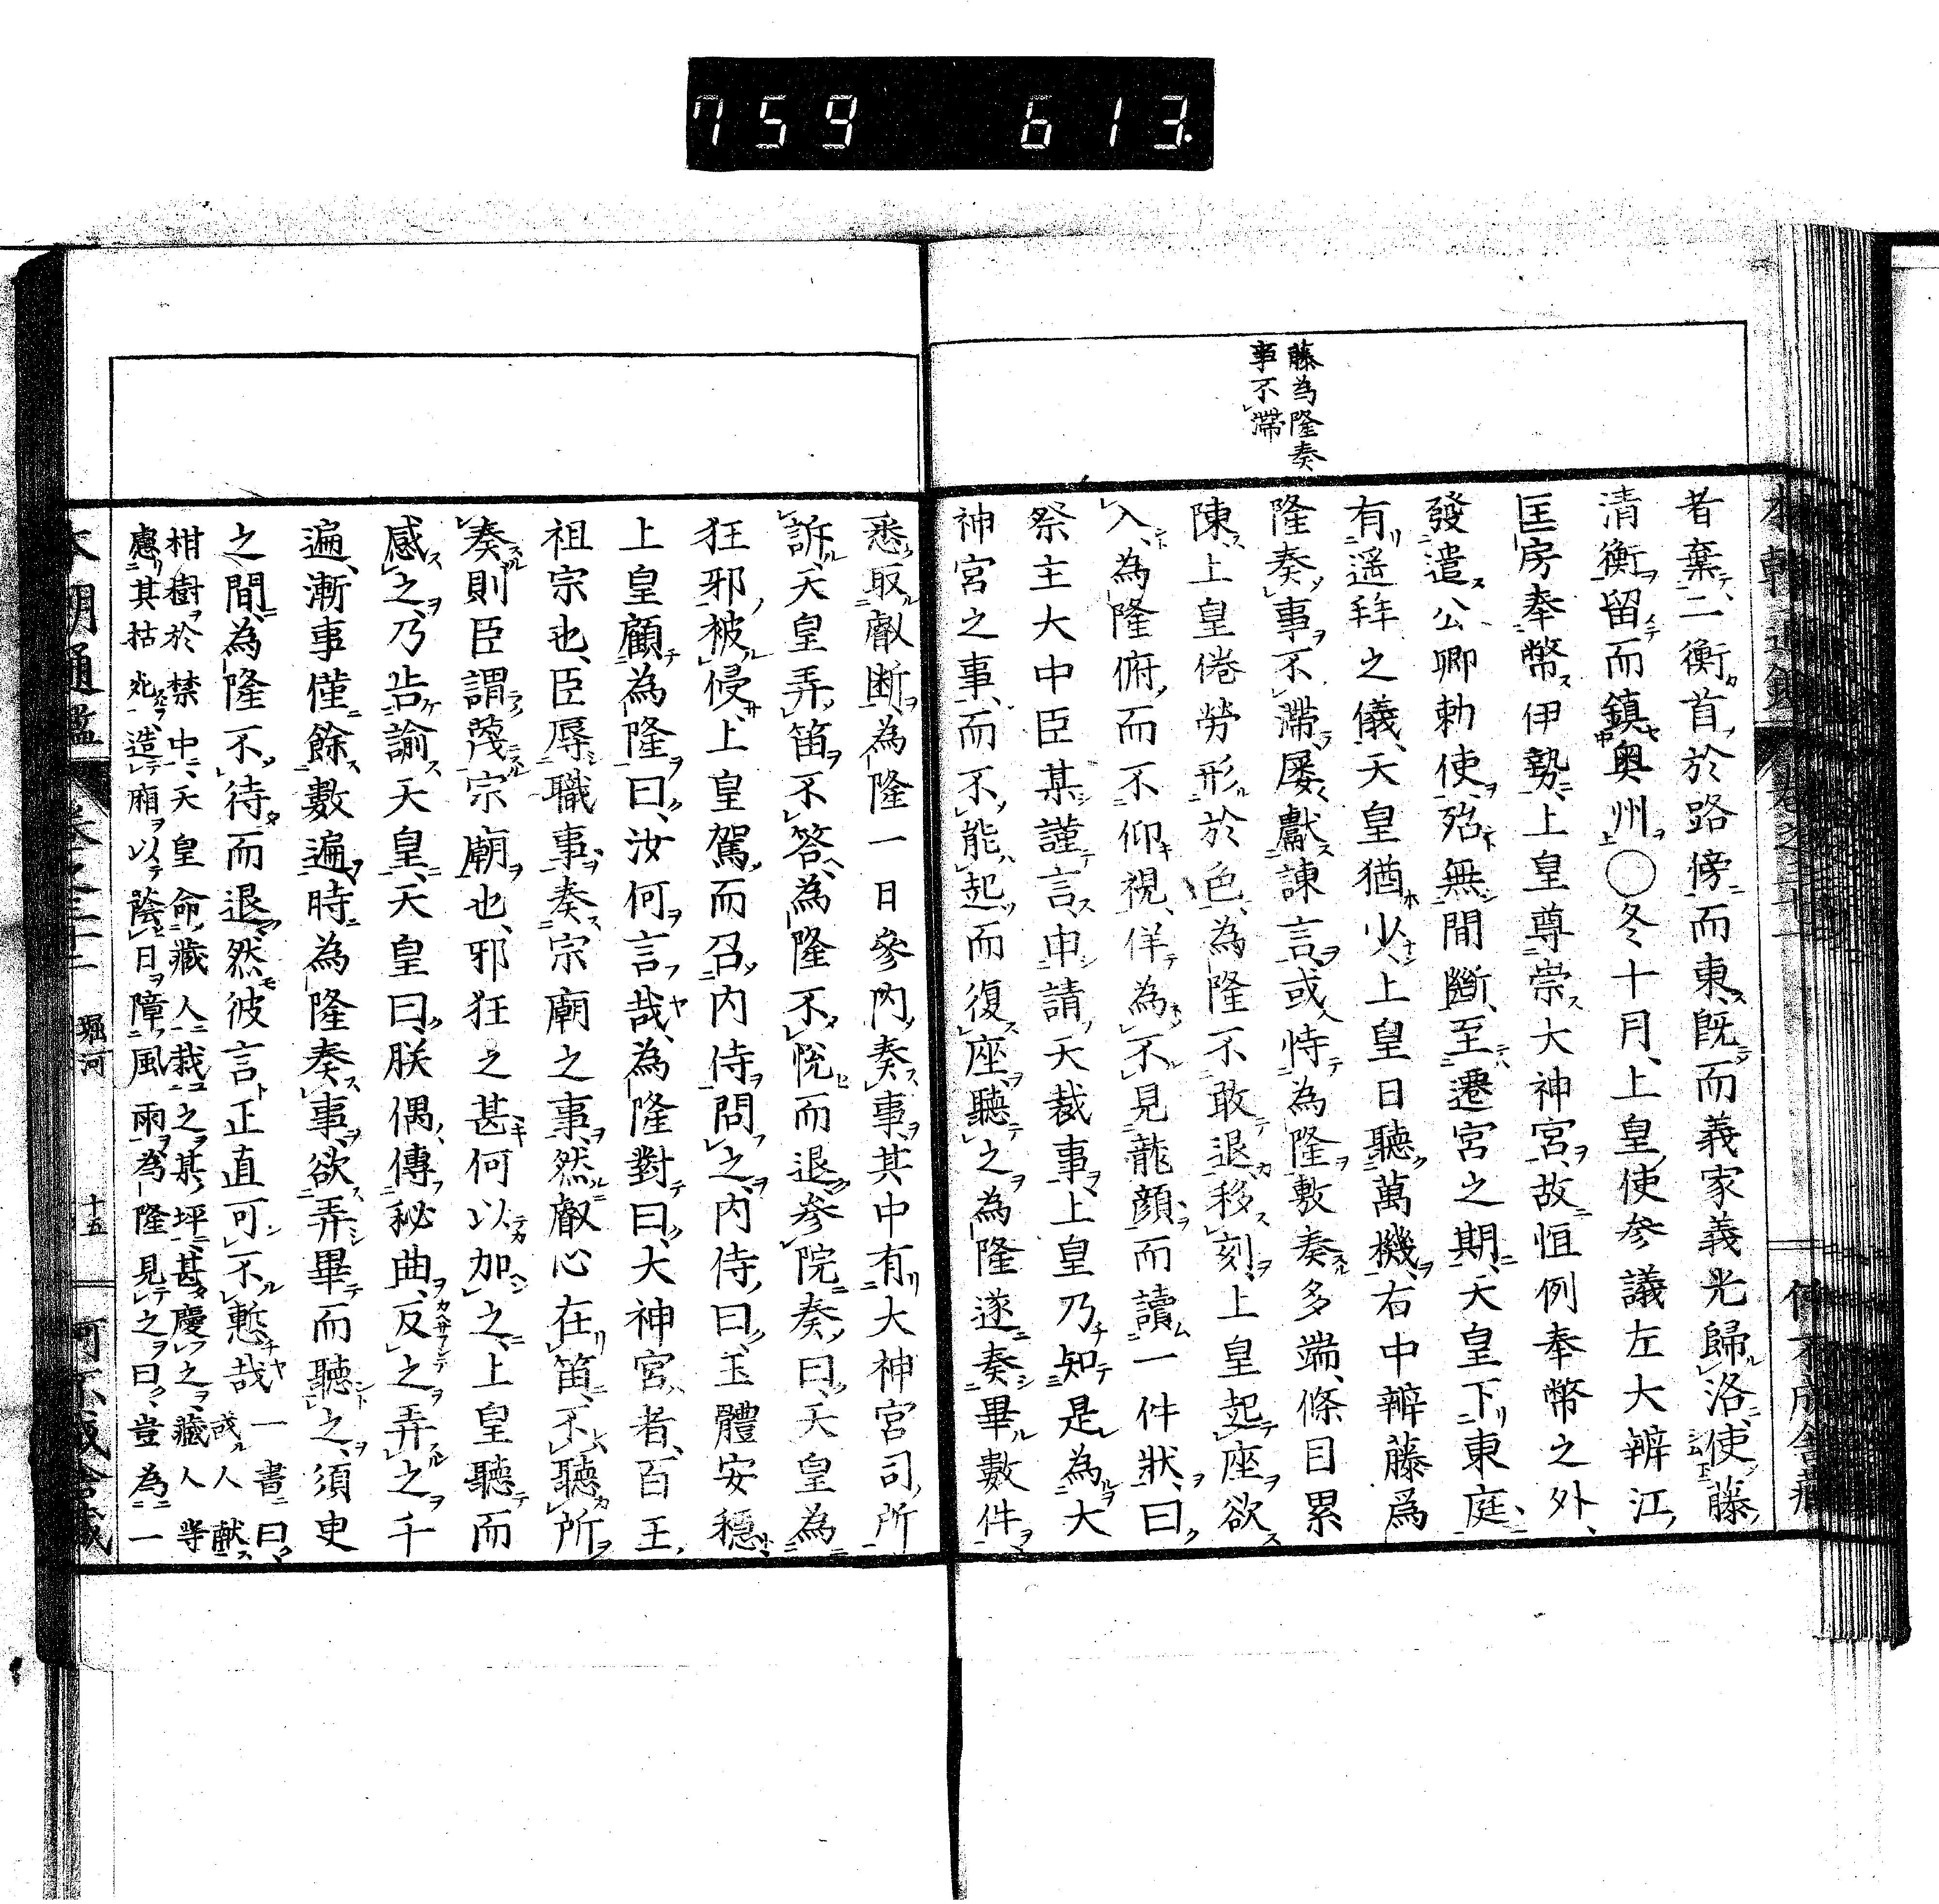 759 613.
藤為隆奏
事不滯
者棄二衡首於路傍而東既而義家義光歸洛使藤
清衡留而鎮奥州○冬十月上皇使参議左大辨江
匡房奉幣伊勢上皇尊崇大神宮故恒例奉幣之外
發遣公卿勅使殆無間斷至遷宮之期天皇下東庭
有遥拜之儀天皇猶少上皇日聽萬機右中辨藤爲
隆奏事不滯屡獻諫言或侍為隆敷奏多端條目累
陳上皇倦勞形於色為隆不敢退移刻上皇起座欲
入為隆俯而不仰視佯為不見龍顔而讀一件狀曰
祭主大中臣某謹言申請天裁事上皇乃知是為大
神宮之事而不能起而復座聽之為隆遂奏畢數件
悉取叡断為隆一日參内奏事其中有大神宮司所
訴天皇弄笛不答為隆不悦而退参院奏曰天皇為
狂邪被侵上皇駕而召内侍問之内侍曰玉體安穏
上皇顧為隆曰汝何言哉為隆對曰大神宮者百王
祖宗也臣辱職事奏宗廟之事然叡心在笛不聽所
奏則臣謂蔑宗廟也邪狂之甚何以加之上皇聽而
感之乃告諭天皇天皇曰朕偶傳秘曲反之弄之千
遍漸事僅餘數遍時為隆奏事欲弄畢而聽之須臾
之間為隆不待而退然彼言正直可不慙哉一書曰或人献
柑樹於禁中天皇命藏人栽之某坪甚慶之藏人等
慮其枯死造廂以蔭日障風雨為隆見之曰豈為一
本朝通鑑 卷之三十二 堀河 十五